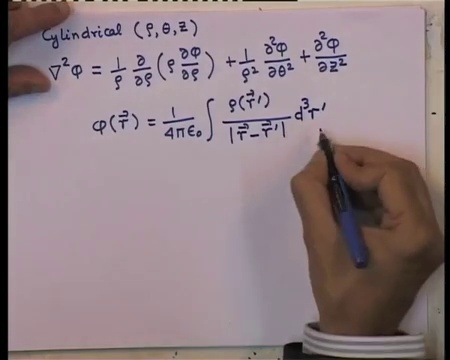 Cylindrical (ρ, θ, z)
∇²φ = 1/ρ ∂/∂ρ (ρ ∂φ/∂ρ) + 1/ρ² ∂²φ/∂θ² + ∂²φ/∂z²
φ(r⃗) = 1/4πϵ₀ ∫ ρ(r⃗′)/|r⃗ − r⃗′| d³r′